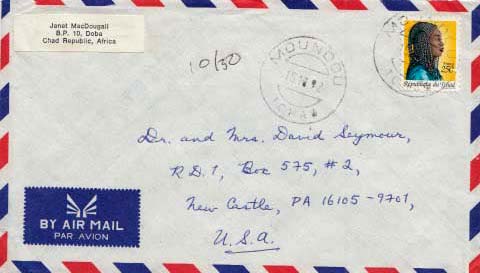 Janet MacDougall
B.P. 10, Doba
Chad Republic, Africa
10/30
MOUNDOU
TCHAD
République du Tchad
Dr. and Mrs. David Seymour,
R.D. 1, Box 575, #2,
New Castle, PA 16105-9701,
U.S.A.
BY AIR MAIL
PAR AVION